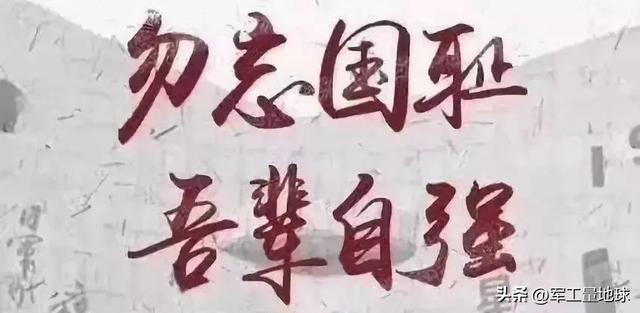 勿忘国耻
吾辈自强
头条 @军工量地球